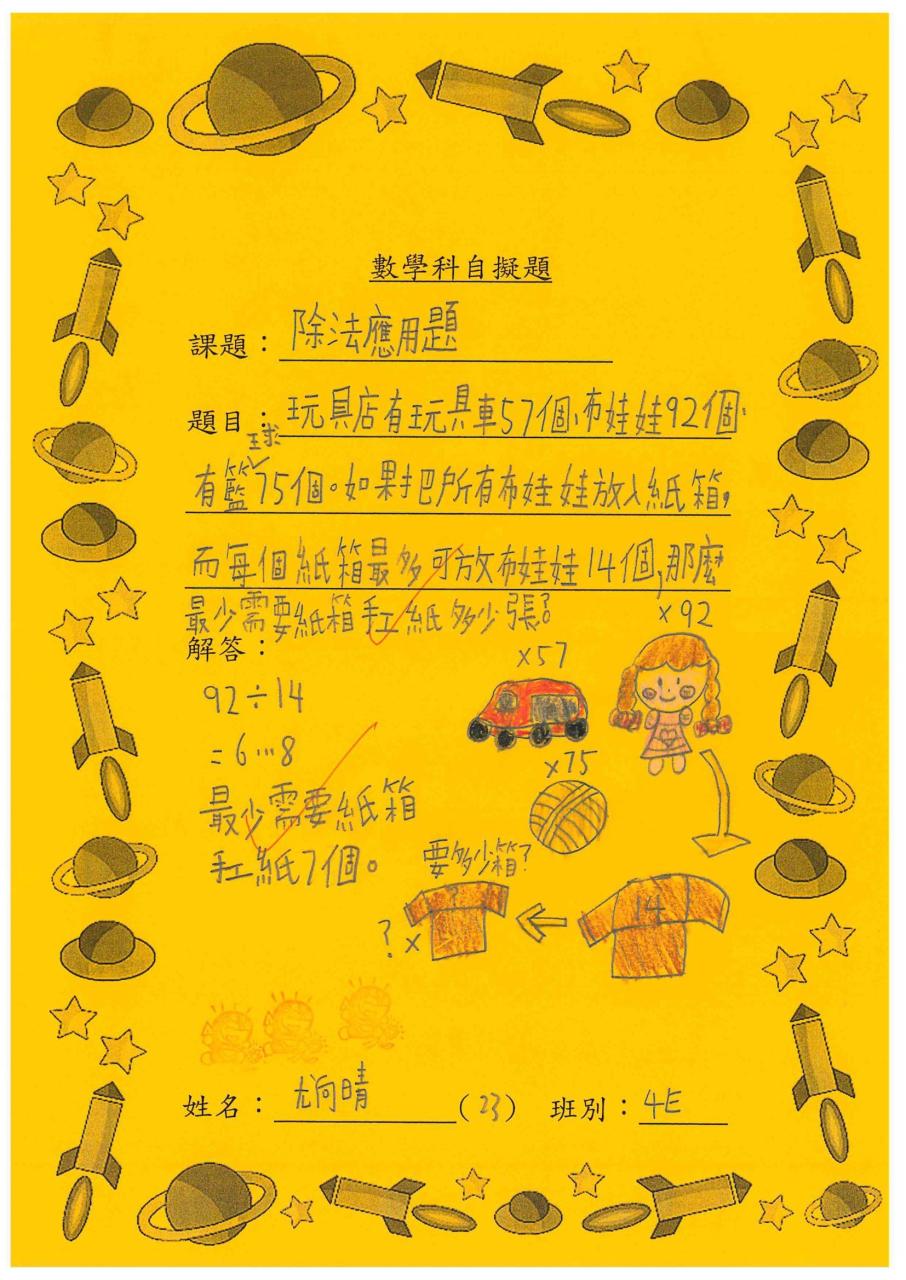 數學科自擬題
課題：除法應用題
題目：玩具店有玩具車57個，布娃娃92個，
有籃球75個。如果把所有布娃娃放入紙箱，
而每個紙箱最多可放布娃娃14個，那麼
最少需要紙箱手工紙多少張？
解答：
×92
×57
92÷14
=6…8
×75
最少需要紙箱
手工紙7個。
要多少箱？
?
14
? ×
姓名：尤向晴（23） 班別：4E